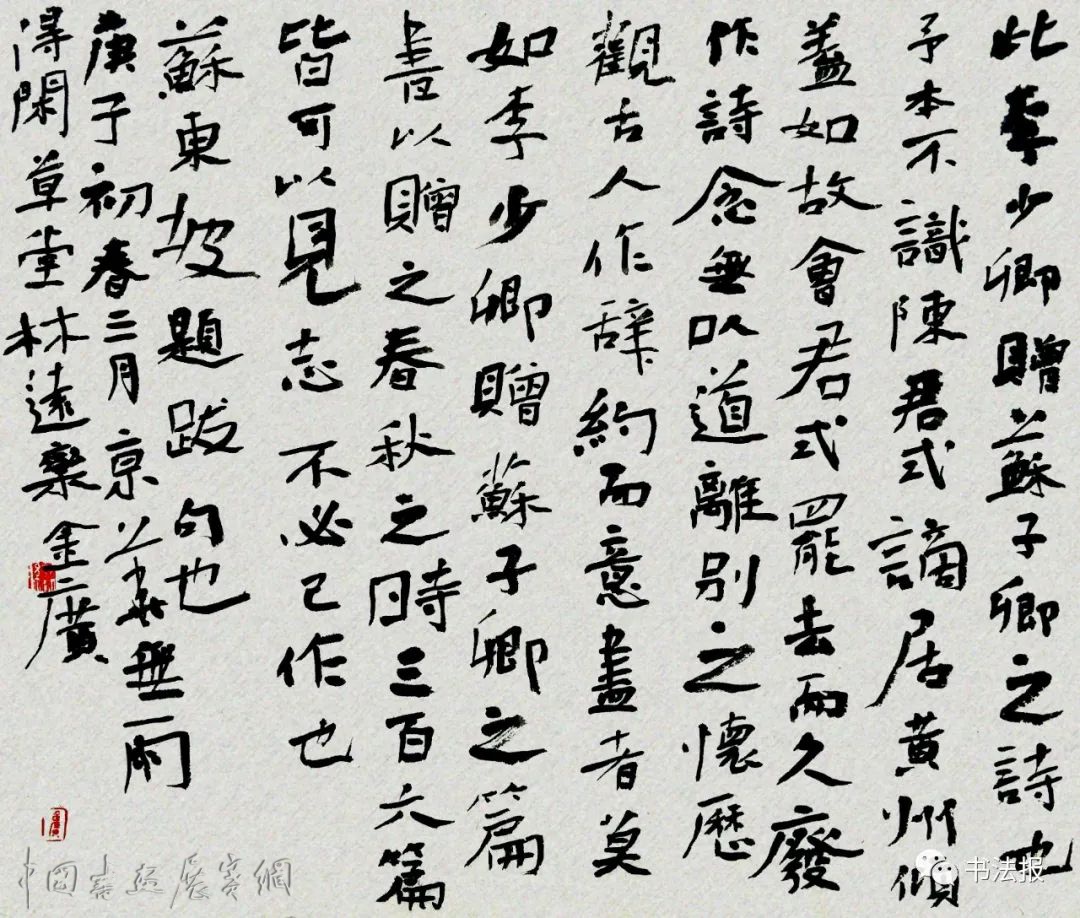 此李少卿贈蘇子卿之詩也
予本不識陳君式謫居黃州傾
蓋如故會君式罷去而久廢
作詩念無以道離別之懷歷
觀古人作辭約而意盡者莫
如李少卿贈蘇子卿之篇
書以贈之春秋之時三百六篇
皆可以見志不必己作也
蘇東坡題跋句也
庚子初春二月京無雨
得閑草堂林遠樂金廣
中國書法展賽網
书法报